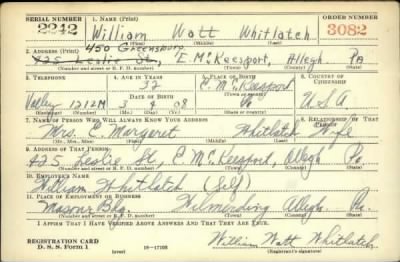 SERIAL NUMBER 1. NAME (Print) ORDER NUMBER
2242 William Watt Whitlatch 3082
(First) (Middle) (Last)
450 Greensburg
2. ADDRESS (Print)
425 Leslie St, E. McKeesport, Allegh Pa
(Number and street or R. F. D. number) (Town) (County) (State)
3. TELEPHONE 4. AGE IN YEARS 5. PLACE OF BIRTH 6. COUNTRY OF CITIZENSHIP
32 E. McKeesport
Valley 1212M DATE OF BIRTH (Town or county) U.S.A
3 9 08 Pa
(Exchange) (Number) (Mo.) (Day) (Yr.) (State or country)
7. NAME OF PERSON WHO WILL ALWAYS KNOW YOUR ADDRESS 8. RELATIONSHIP OF THAT PERSON
Mrs. C. Margaret Whitlatch Wife
(Mr., Mrs., Miss) (First) (Middle) (Last)
9. ADDRESS OF THAT PERSON
425 Leslie St, E. McKeesport, Allegh Pa.
(Number and street or R. F. D. number) (Town) (County) (State)
10. EMPLOYER'S NAME
William Whitlatch (Self)
11. PLACE OF EMPLOYMENT OR BUSINESS
Masonr Bldg. Wilmerding Allegh. Pa.
(Number and street or R. F. D. number) (Town) (County) (State)
I AFFIRM THAT I HAVE VERIFIED ABOVE ANSWERS AND THAT THEY ARE TRUE.
REGISTRATION CARD
D. S. S. Form 1 (over) 16—17105 William Watt Whitlatch
(Registrant's signature)